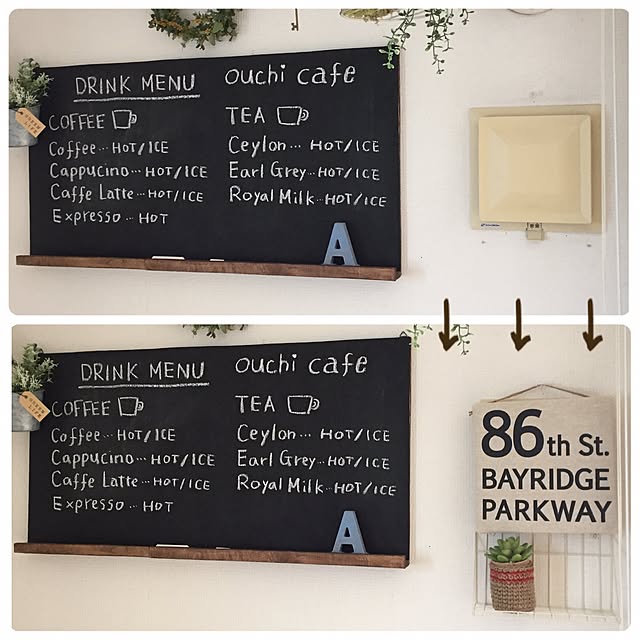 DRINK MENU
ouchi cafe
COFFEE
Coffee... HOT/ICE
Cappucino... HOT/ICE
Caffe Latte... HOT/ICE
Expresso... HOT
TEA
Ceylon... HOT/ICE
Earl Grey... HOT/ICE
Royal Milk... HOT/ICE
A
DRINK MENU
ouchi cafe
COFFEE
Coffee... HOT/ICE
Cappucino... HOT/ICE
Caffe Latte... HOT/ICE
Expresso... HOT
TEA
Ceylon... HOT/ICE
Earl Grey... HOT/ICE
Royal Milk... HOT/ICE
A
86th St.
BAYRIDGE
PARKWAY